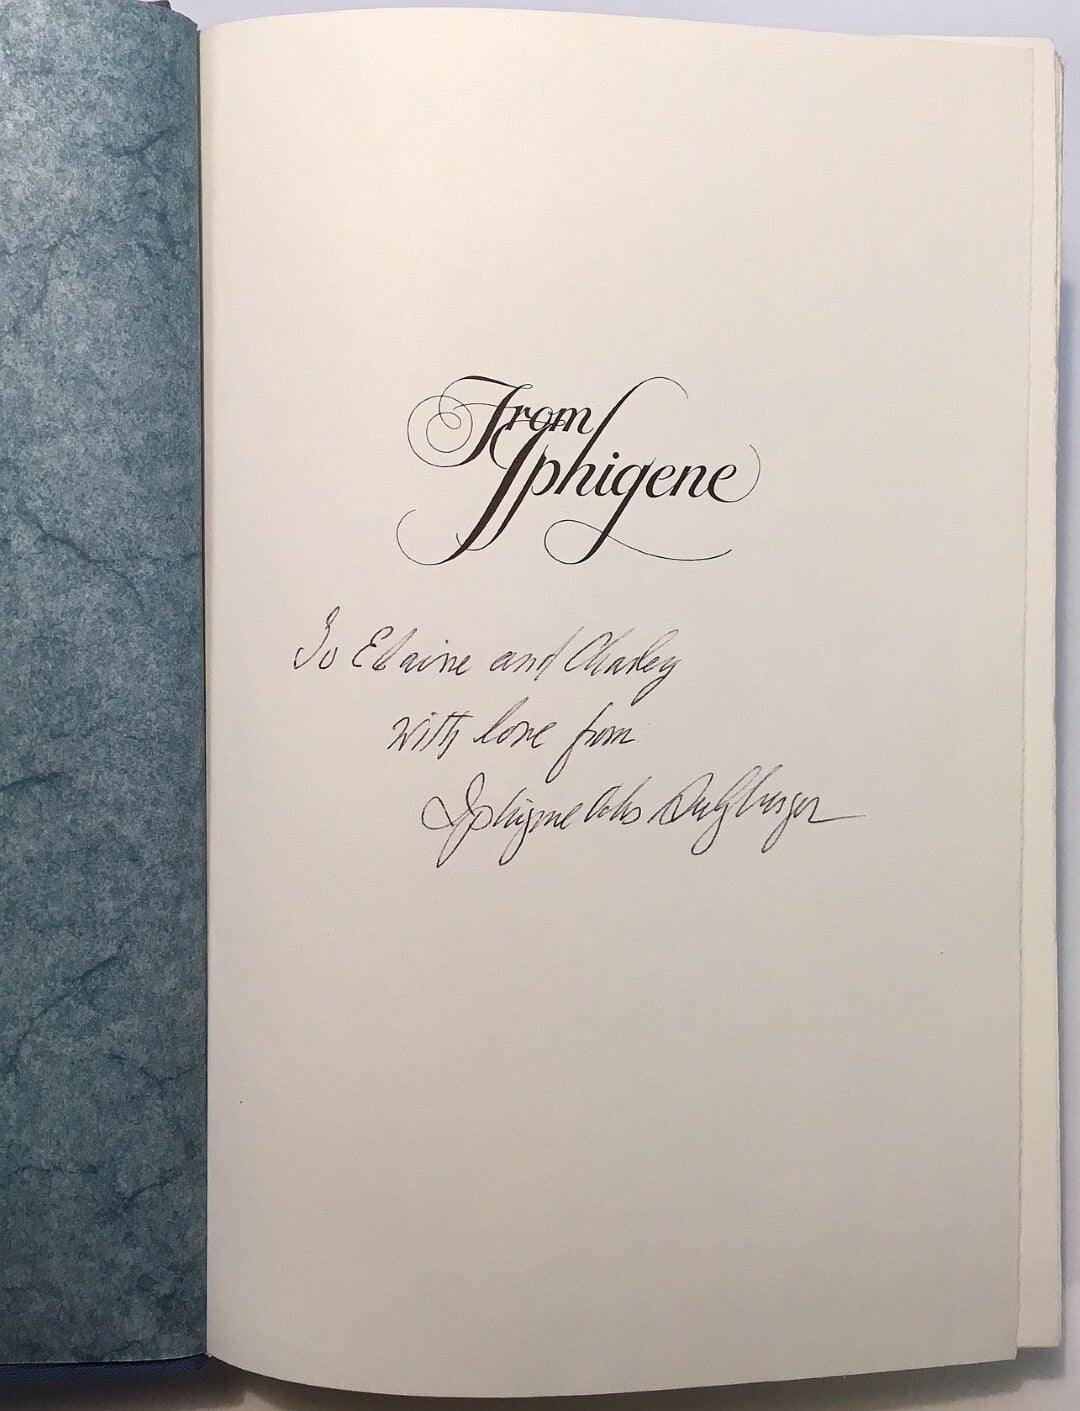 From
Iphigene
To Elaine and Charley
with love from
Iphigene Ochs Sulzberger